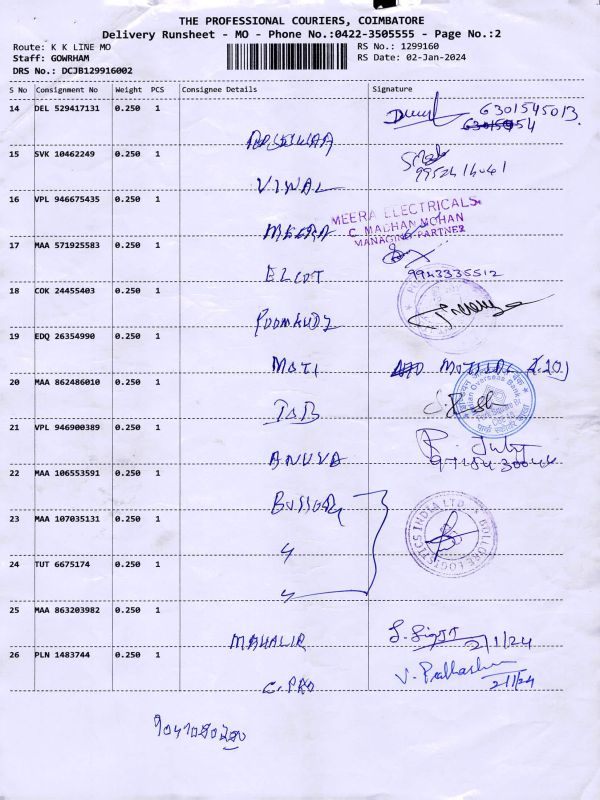 THE PROFESSIONAL COURIERS, COIMBATORE
Delivery Runsheet - MO - Phone No.:0422-3505555 - Page No.:2
Route: K K LINE MO
RS No.: 1299160
Staff: GOWRHAM
RS Date: 02-Jan-2024
DRS No.: DCJB129916002
S No Consignment No Weight PCS Consignee Details Signature
14 DEL 529417131 0.250 1
6301545013
15 SVK 10462249 0.250 1
VIMAL
16 VPL 946675435 0.250 1
MEERA ELECTRICALS
C. MADHAN MOHAN
MANAGING PARTNER
MEERA
17 MAA 571925583 0.250 1
ELCOT 9943335512
18 COK 24455403 0.250 1
19 EDQ 26354990 0.250 1
MOTI
20 MAA 862486010 0.250 1
Indian Overseas Bank
IOB
21 VPL 946900389 0.250 1
22 MAA 106553591 0.250 1
23 MAA 107035131 0.250 1
BOLLORE LOGISTICS INDIA LTD
24 TUT 6675174 0.250 1
25 MAA 863203982 0.250 1
MAHALIR 2/1/24
26 PLN 1483744 0.250 1
V. Prabhashini
2/1/24
C. PRO